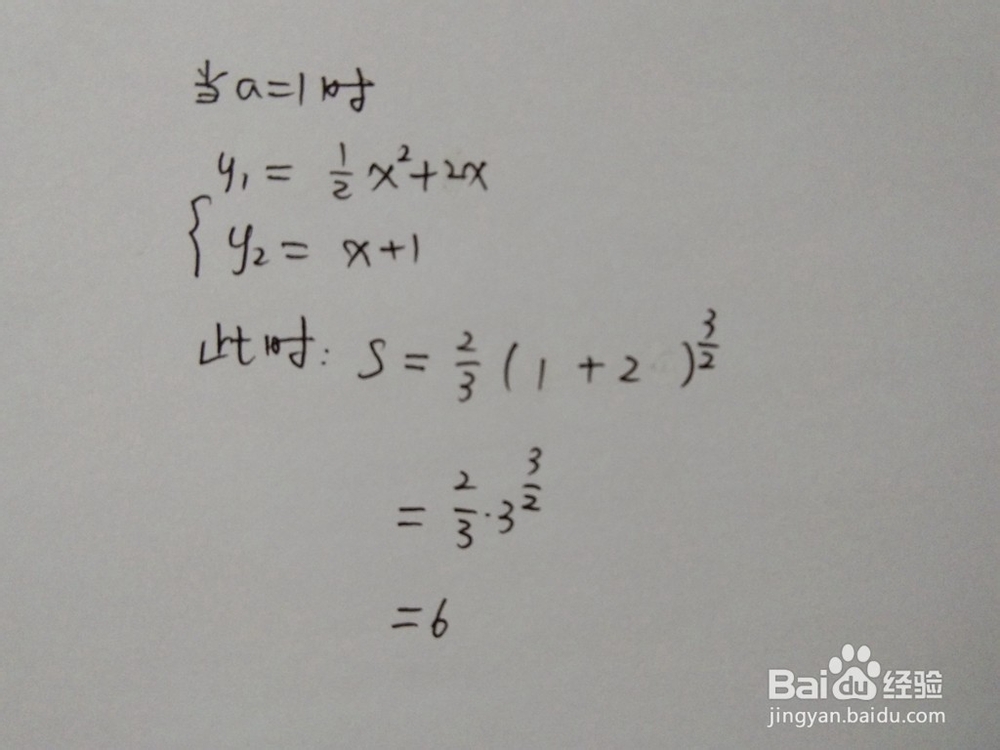 当a=1时
y₁ = ½x²+2x
{ y₂ = x+1
此时: S = 2/3 (1 + 2 )^(3/2)
= 2/3 · 3^(3/2)
=6
Baidu经验
jingyan.baidu.com